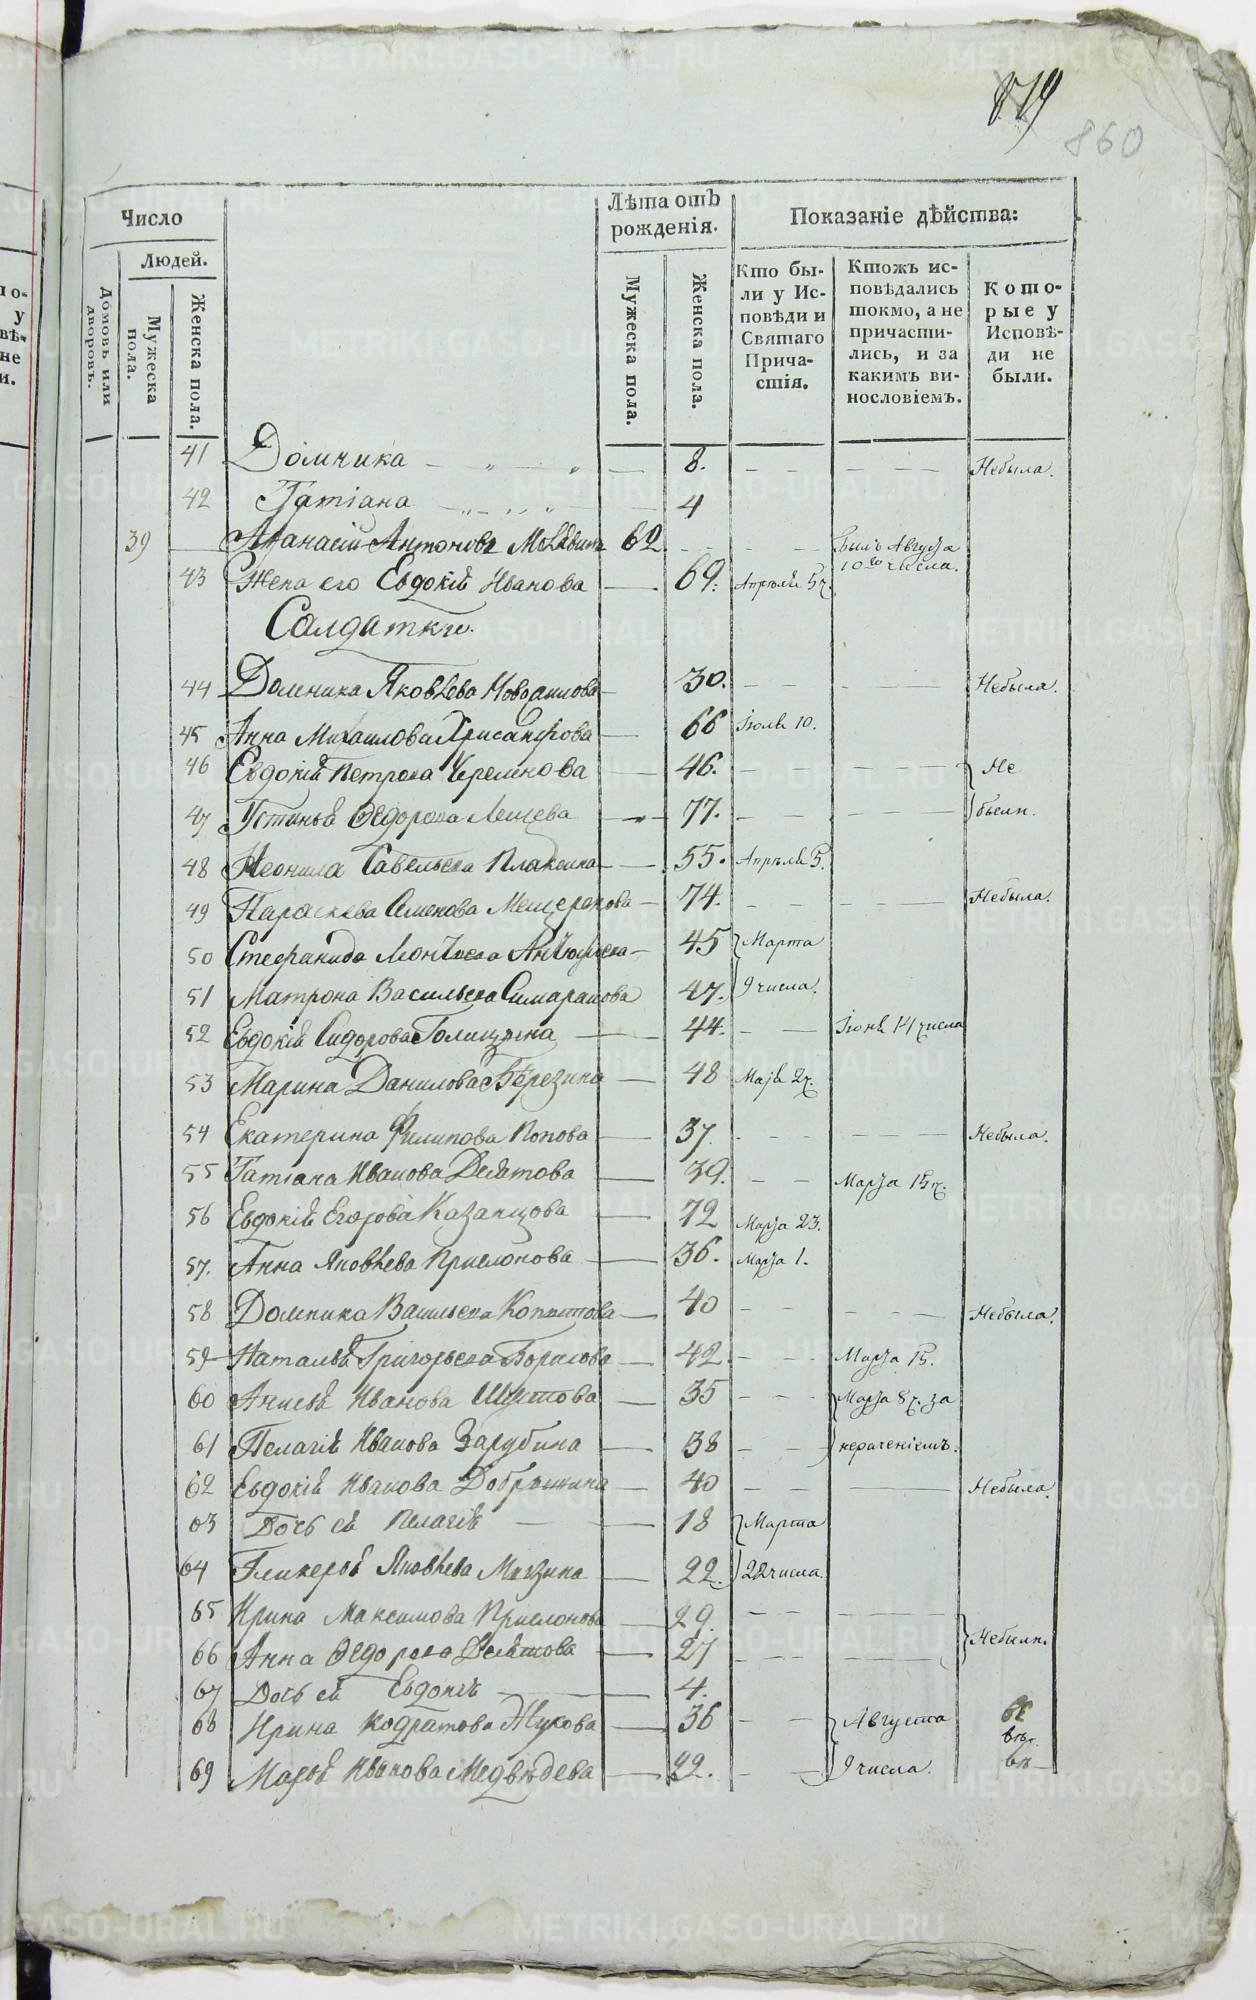 879
860
Число
Людей.
Домовъ или дворовъ.
Мужеска пола.
Женска пола.
Лѣта отъ рожденія.
Мужеска пола.
Женска пола.
Показаніе дѣйства:
Кто были у Исповѣди и Святаго Причастія.
Ктожъ исповѣдались токмо, а не причастились, и за какимъ винословіемъ.
Которые у Исповѣди не были.
41 Домника 8. Небыла.
42 Татіана 4
39 Афанасій Антоновъ 62 Былъ Августа 10го числа.
43 Жена его Евдокіѣ Иванова 69. Апрѣлѣ 5 ч.
Салдатки.
44 Домника Яковлева 30. Небыла.
45 Анна Михаилова Хрисанфова 66 Іюлѣ 10.
46 Евдокіѣ Петрова Черемнова 46. Не
47 Устиньѣ Ѳедорова Лещева 77. были.
48 Неонила Савельева Плаксина 55. Апрѣлѣ 5.
49 Параскева Семенова Мещерякова 74. Небыла.
50 Стефанида 45 Марта
51 Матрона Васильева 47. 9 числа.
52 Евдокіѣ Сидорова Голицына 44. Іюнѣ 14 числа
53 Марина Данилова Березина 48 Маіѣ 2 ч.
54 Екатерина Филипова Попова 37. Небыла.
55 Татіана Иванова Девятова 39. Марта 15 ч.
56 Евдокіѣ Егорова Казанцова 72 Марта 23.
57. Анна Яковлева Прислонова 36. Марта 1.
58 Домника Васильева Копытова 40 Небыла.
59 Натальѣ Григорьева Борисова 42. Марта 15.
60 Анисьѣ Иванова Шутова 35 Марта 8 ч. за
61 Пелагіѣ Иванова Зарубина 38 нераченіемъ.
62 Евдокіѣ Иванова Добрынина 40 Небыла.
63 Дочь еѣ Пелагіѣ 18 Марта
64 Гликерьѣ Яковлева 22. 22 числа.
65 Ирина Максимова Прислонова 29.
66 Анна Ѳедорова Девятова 27 Небыли.
67 Дочь еѣ Евдокіѣ 4.
68 Ирина Кодратова Жукова 36 Августа
69 Марьѣ Иванова Медвѣдева 22. 9 числа.
METRIKI.GASO-URAL.RU